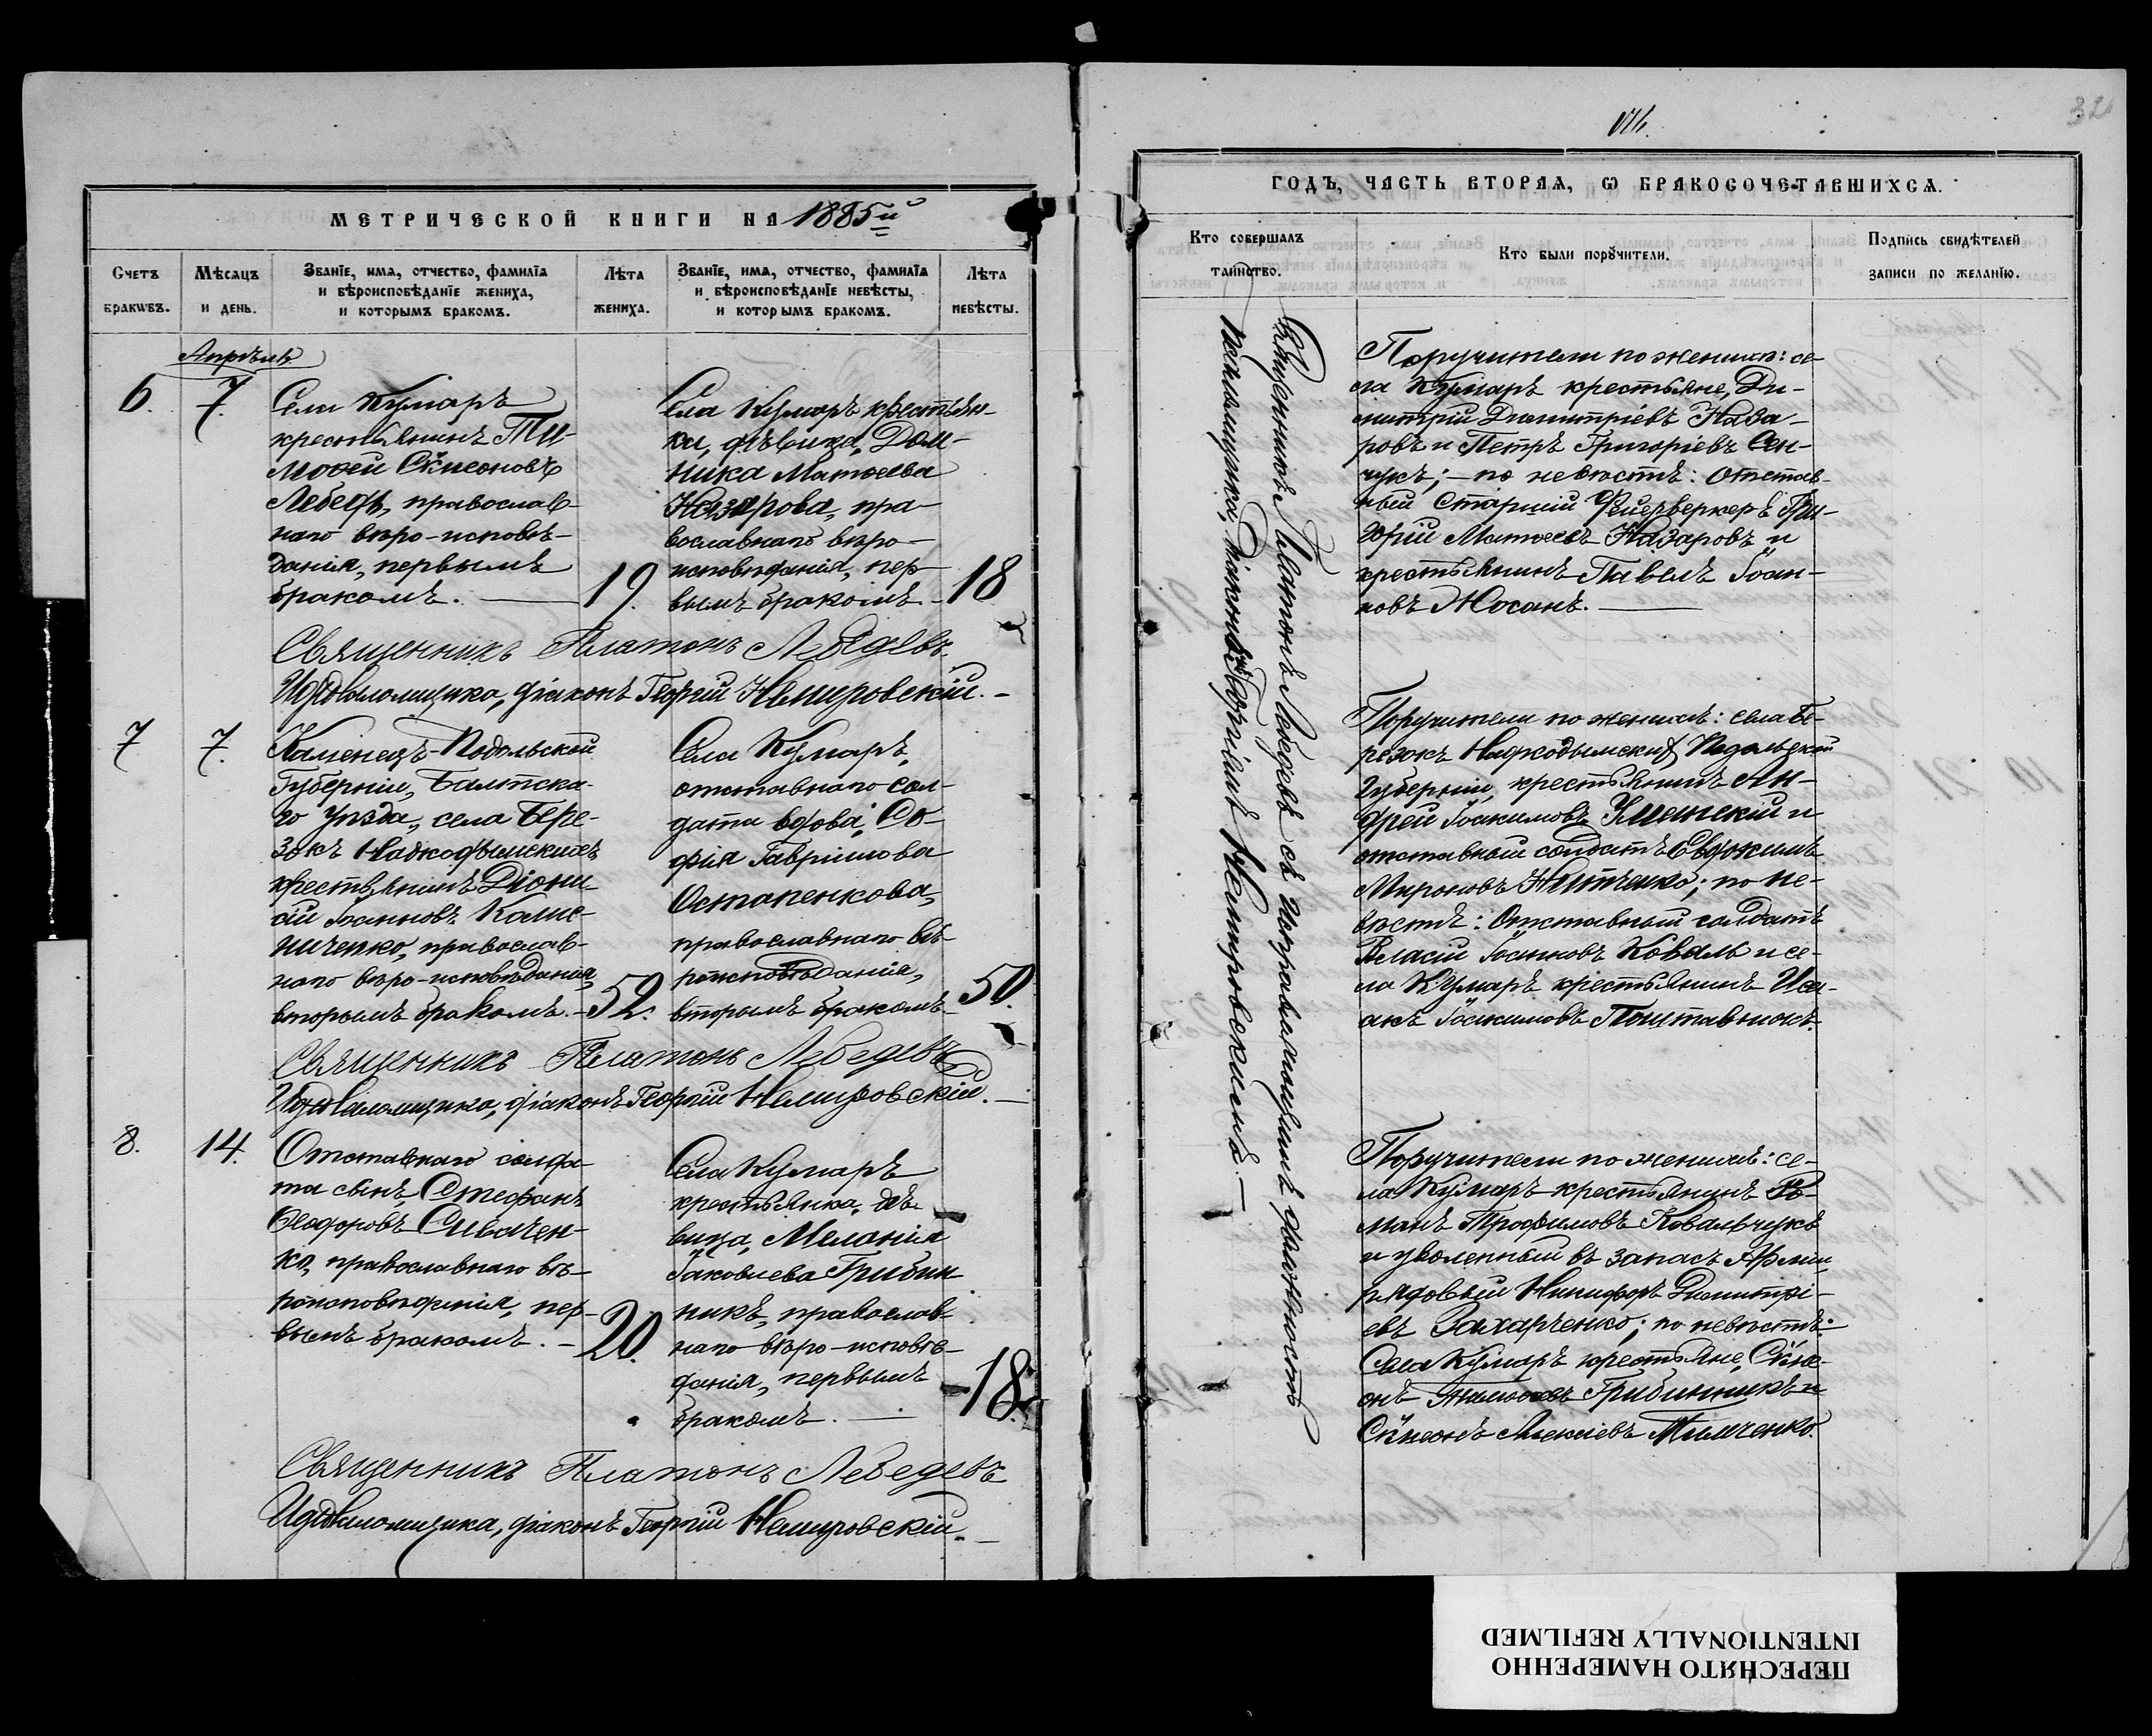 МЕТРИЧЕСКОЙ КНИГИ НА 1885й
Счетъ браковъ.
Мѣсяцъ и день.
Званіе, имя, отчество, фамилія
и вѣроисповѣданіе жениха,
и которымъ бракомъ.
Лѣта жениха.
Званіе, имя, отчество, фамилія
и вѣроисповѣданіе невѣсты,
и которымъ бракомъ.
Лѣта невѣсты.
Апрѣль
6. 7.
Села Кумаръ
крестьянинъ Ти-
моѳей Сѵмеоновъ
Лебедь, православ-
наго вѣро-исповѣ-
данія, первымъ
бракомъ.
19.
Села Кумаръ крестьян-
ка, дѣвица, Дом-
ника Матѳеева
Назарова, пра-
вославнаго вѣро-
исповѣданія, пер-
вымъ бракомъ.
18
Священникъ Платонъ Лебедевъ.
И. д. псаломщика, діаконъ Георгій Немировскій.
7 7.
Каменецъ-Подольской
Губерніи, Балтска-
го уѣзда, села Бере-
зокъ Надкодымскихъ
крестьянинъ Діони-
сій Іоанновъ Калие-
ниченко, православ-
наго вѣро-исповѣданія,
вторымъ бракомъ.
52.
Села Кумаръ,
отставнаго сол-
дата вдова, Со-
фія Гавріилова
Остапенкова,
православнаго вѣ-
роисповѣданія,
вторымъ бракомъ.
50.
Священникъ Платонъ Лебедевъ
И. д. псаломщика, діаконъ Георгій Немировскій.
8. 14.
Отставнаго солда-
та сынъ, Стефанъ
Ѳеодоровъ Сиваче-
ко, православнаго вѣ-
роисповѣданія, пер-
вымъ бракомъ.
20.
Села Кумаръ
крестьянка, дѣ-
вица, Меланія
Іаковлева Грибин
никъ, православ-
наго вѣро-исповѣ-
данія, первымъ
бракомъ.
18.
Священникъ Платонъ Лебедевъ
И. д. псаломщика, діаконъ Георгій Немировскій.
32
ГОДЪ, ЧАСТЬ ВТОРАЯ, Ѡ БРАКОСОЧЕТАВШИХСЯ.
Кто совершалъ таинство.
Кто были поручители.
Подпись свидѣтелей
записи по желанію.
Священникъ Платонъ Лебедевъ съ исправляющимъ должность
псаломщика, діакономъ Георгіемъ Немировскимъ.
Поручители по женихѣ: се-
ла Кумаръ крестьяне, Ди-
митрій Димитріевъ Наза-
ровъ и Петръ Григоріевъ Сен-
чукъ; - по невѣстѣ: отстав-
ный Старшій Фейерверкеръ Гри-
горій Матѳеевъ Назаровъ и
крестьянинъ Павелъ Іоан-
новъ Мосанъ.
Поручители по женихѣ: села Бе-
резокъ Надкодымскихъ Подольской
Губерніи, крестьянинъ Ан-
дрей Іоакимовъ Уметскій и
отставный солдатъ Евдокимъ
Мироновъ Нитченко; по не-
вѣстѣ: Отставный солдатъ
Власій Іоанновъ Коваль и се-
ла Кумаръ крестьянинъ Иса-
акъ Іоакимовъ Поштавнюкъ.
Поручители по женихѣ: се-
ла Кумаръ крестьянинъ Ро-
манъ Трофимовъ Ковальчукъ
и уволенный въ запасъ Арміи
рядовый Никифоръ Димитрі-
евъ Захарченко; по невѣстѣ:
Села Кумаръ крестьяне, Сѵме-
онъ Тимоѳеевъ Грибинникъ и
Сѵмеонъ Алексіевъ Тимченко.
ПЕРЕСНЯТО НАМЕРЕННО
INTENTIONALLY REFILMED